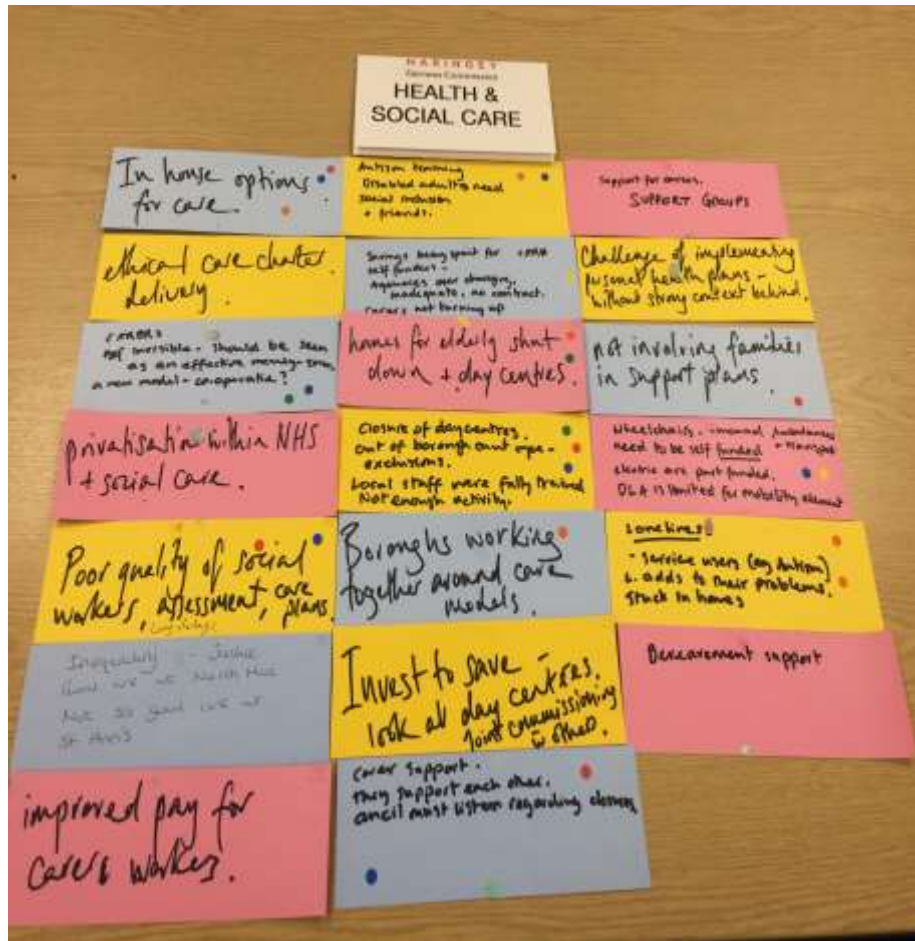 HARINGEY
HEALTH &
SOCIAL CARE
In house options
for care.
Autism training
Disabled adults need
social inclusion
+ friends.
Support for carers.
SUPPORT GROUPS
ethical care charter
delivery.
Savings being spent for
self funders -
Agencies over charging,
inadequate, no contract.
carers not turning up
Challenge of implementing
personal health plans -
without strong context behind.
CARERS
not invisible - should be seen
as an effective money-
a new model - co-operative?
homes for elderly shut
down + day centres.
not involving families
in support plans
privatisation within NHS
+ social care.
Closure of day centres.
out of borough
exclusions.
Local staff were fully trained
Not enough activity.
Wheelchairs. - manual
need to be self funded
electric are part funded.
DLA is limited for mobility element
Poor quality of social
workers, assessment, care
plans
Boroughs working
together around care
models.
Loneliness
- Service users (eg Autism)
adds to their problems.
stuck in homes
Inequality - Justice
Good we at North
Not so good we at
St Ann's
Invest to save -
look at day centres.
Joint commissioning
other.
Bereavement support
improved pay for
carers workers.
carer support.
they support each other.
ancil must listen regarding closures